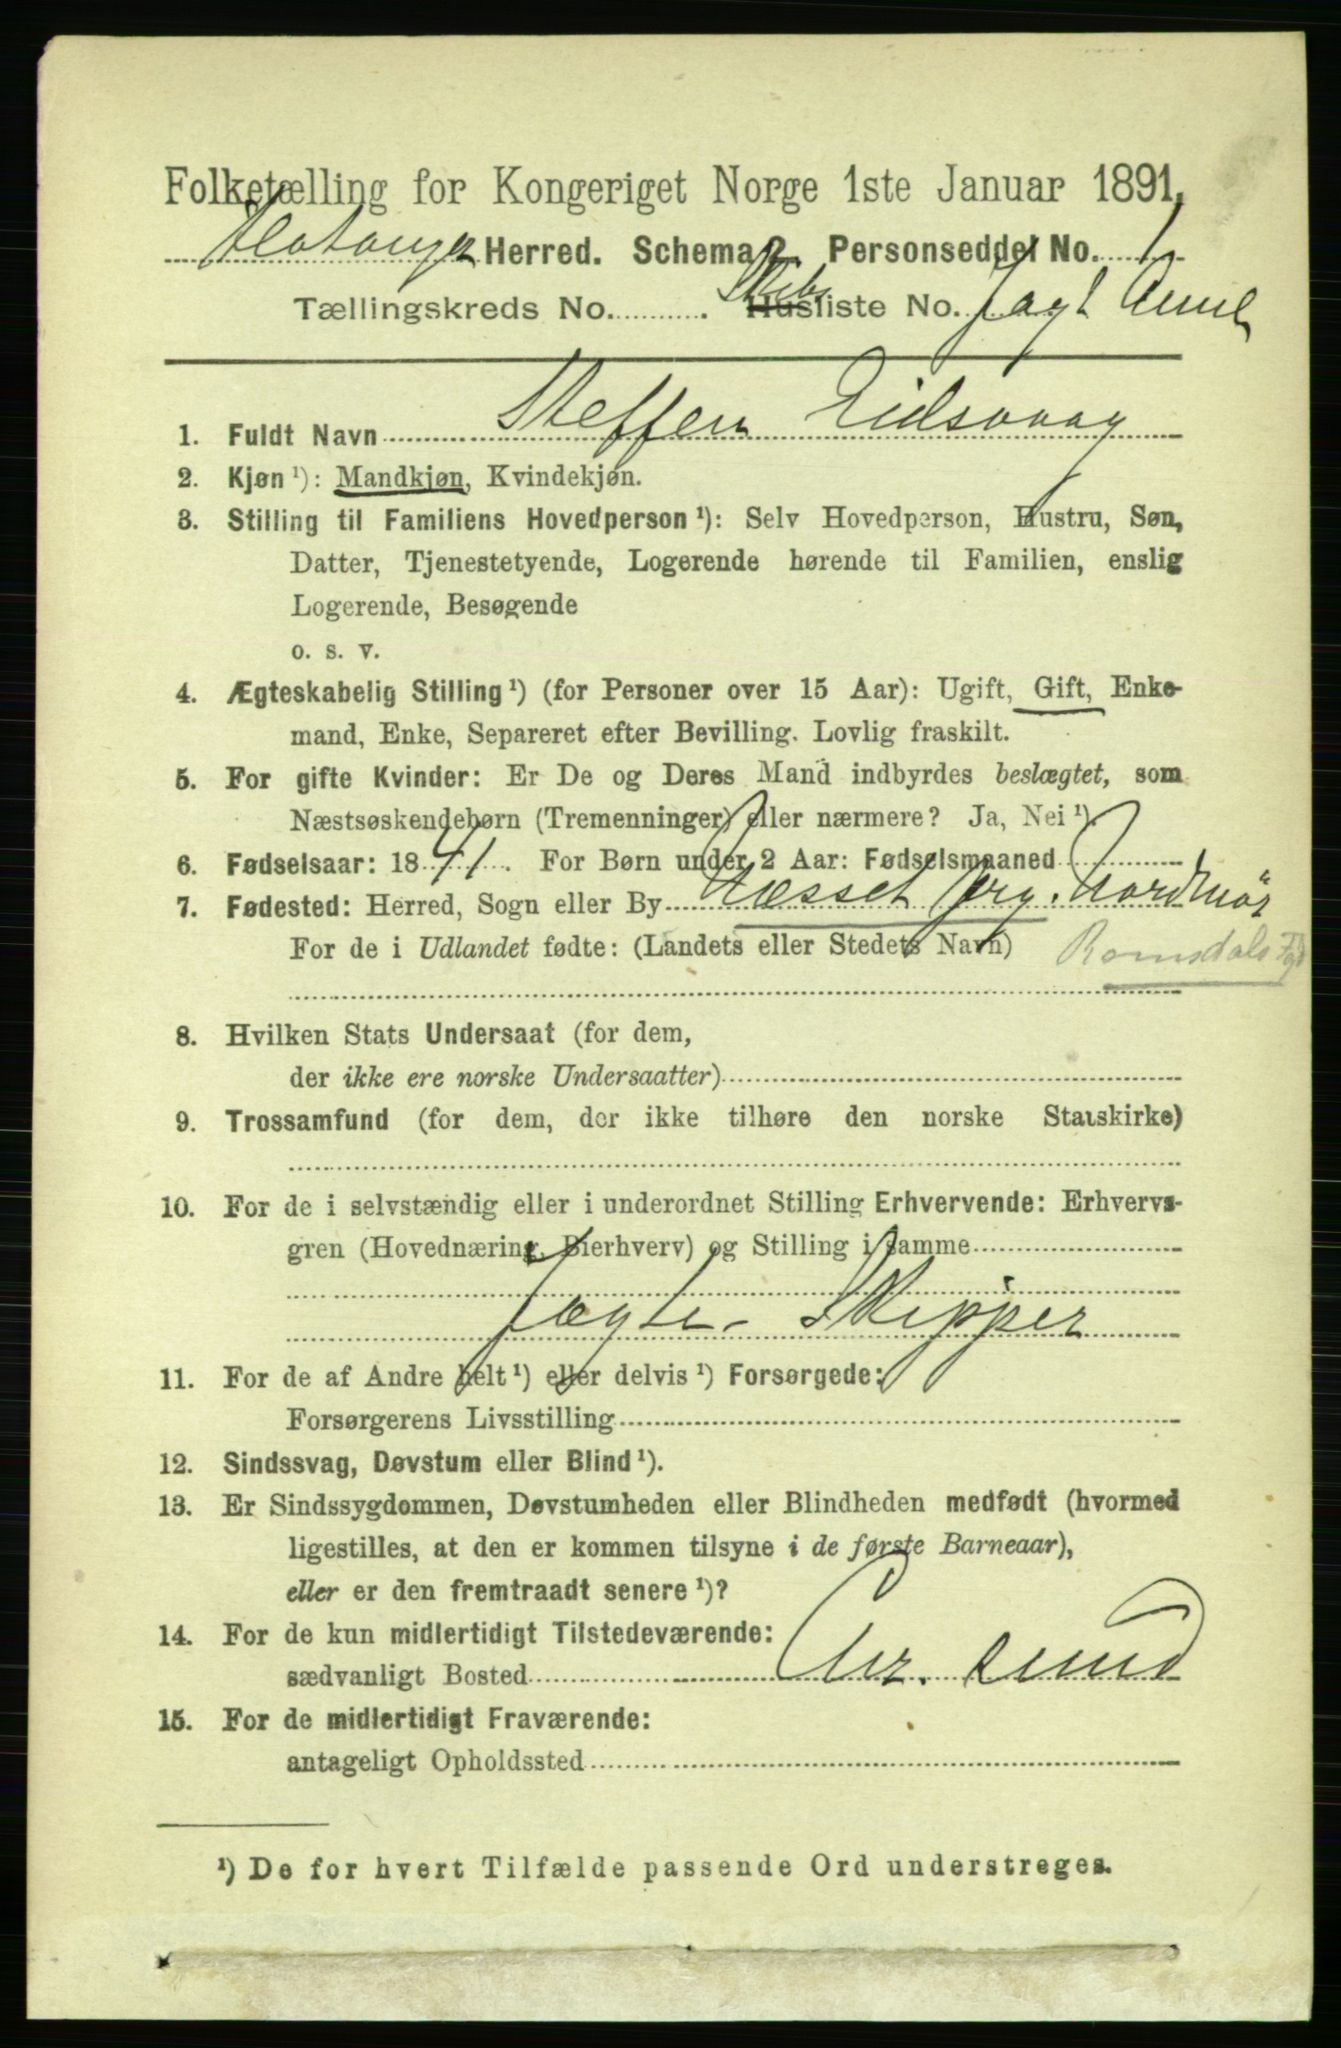 Folketælling for Kongeriget Norge 1ste Januar 1891.
Herred. Schema 2. Personseddel No. 1
Tællingskreds No. ........ Skibs Husliste No. Jagt
1. Fuldt Navn Steffen Eidsvaag
2. Kjøn ¹): Mandkjøn, Kvindekjøn.
3. Stilling til Familiens Hovedperson ¹): Selv Hovedperson, Hustru, Søn,
Datter, Tjenestetyende, Logerende hørende til Familien, enslig
Logerende, Besøgende
o. s. v.
4. Ægteskabelig Stilling ¹) (for Personer over 15 Aar): Ugift, Gift, Enke-
mand, Enke, Separeret efter Bevilling. Lovlig fraskilt.
5. For gifte Kvinder: Er De og Deres Mand indbyrdes beslægtet, som
Næstsøskendebørn (Tremenninger) eller nærmere? Ja, Nei ¹).
6. Fødselsaar: 1841. For Børn under 2 Aar: Fødselsmaaned
7. Fødested: Herred, Sogn eller By Næsset Prg. Nordmör
For de i Udlandet fødte: (Landets eller Stedets Navn) Romsdals Fgd
8. Hvilken Stats Undersaat (for dem,
der ikke ere norske Undersaatter)
9. Trossamfund (for dem, der ikke tilhøre den norske Statskirke)
10. For de i selvstændig eller i underordnet Stilling Erhvervende: Erhvervs-
gren (Hovednæring, Bierhverv) og Stilling i samme
Jagte-Skipper
11. For de af Andre helt ¹) eller delvis ¹) Forsørgede:
Forsørgerens Livsstilling
12. Sindssvag, Døvstum eller Blind ¹).
13. Er Sindssygdommen, Døvstumheden eller Blindheden medfødt (hvormed
ligestilles, at den er kommen tilsyne i de første Barneaar),
eller er den fremtraadt senere ¹)?
14. For de kun midlertidigt Tilstedeværende:
sædvanligt Bosted Chr. sund
15. For de midlertidigt Fraværende:
antageligt Opholdssted
¹) De for hvert Tilfælde passende Ord understreges.